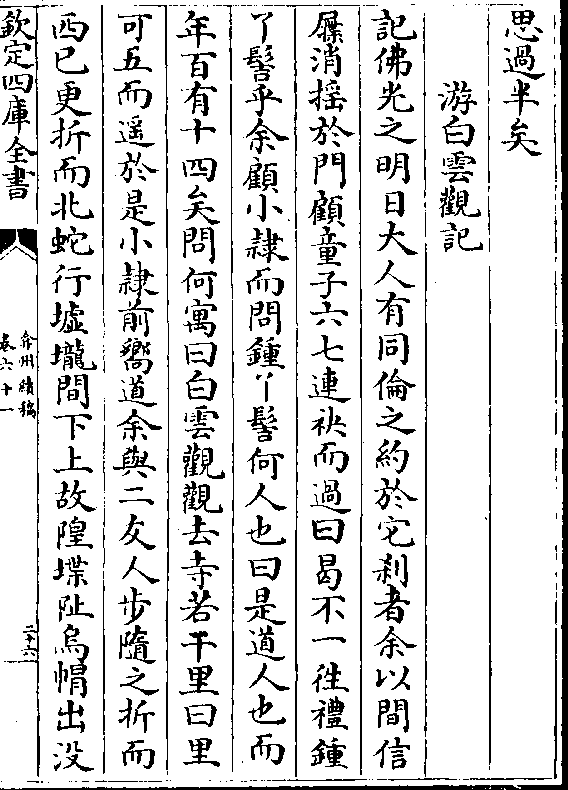 思過半矣
游白雲觀記
記佛光之明日大人有同倫之約於它剎者余以間信
屧消揺於門顧童子六七連袂而過曰曷不一徃禮鍾
丫髻乎余顧小隷而問鍾丫髻何人也曰是道人也而
年百有十四矣問何寓曰白雲觀觀去寺若干里曰里
可五而遥於是小隷前嚮道余與二友人歩隨之折而
西巳更折而北蛇行墟壠間下上故隍堞阯烏㡌出没
欽定四庫全書
弇州續稿
卷六十一
二十六